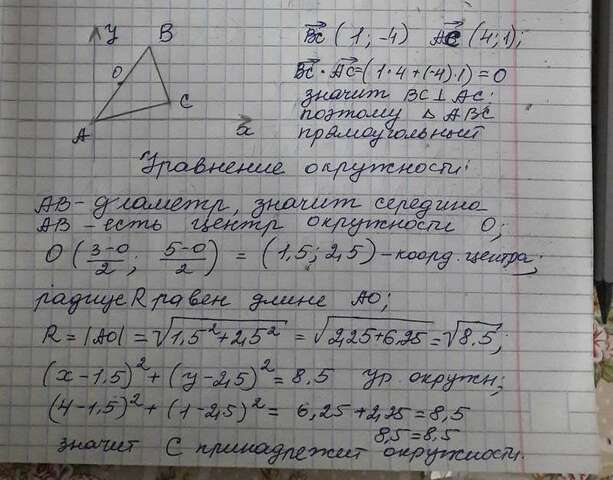 y B
O
C
A x
BC (1; -4) AC (4; 1);
BC · AC = (1·4 + (-4)·1) = 0
значит BC ⊥ AC;
поэтому △ ABC
прямоугольный
Уравнение окружности:
AB - диаметр, значит середина
AB - есть центр окружности O;
O (3-0/2; 5-0/2) = (1,5; 2,5) - коорд. центра;
радиус R равен длине AO;
R = |AO| = √1,5² + 2,5² = √2,25 + 6,25 = √8,5;
(x - 1,5)² + (y - 2,5)² = 8,5 Ур. окружн;
(4 - 1,5)² + (1 - 2,5)² = 6,25 + 2,25 = 8,5
8,5 = 8,5
значит C принадлежит окружности.